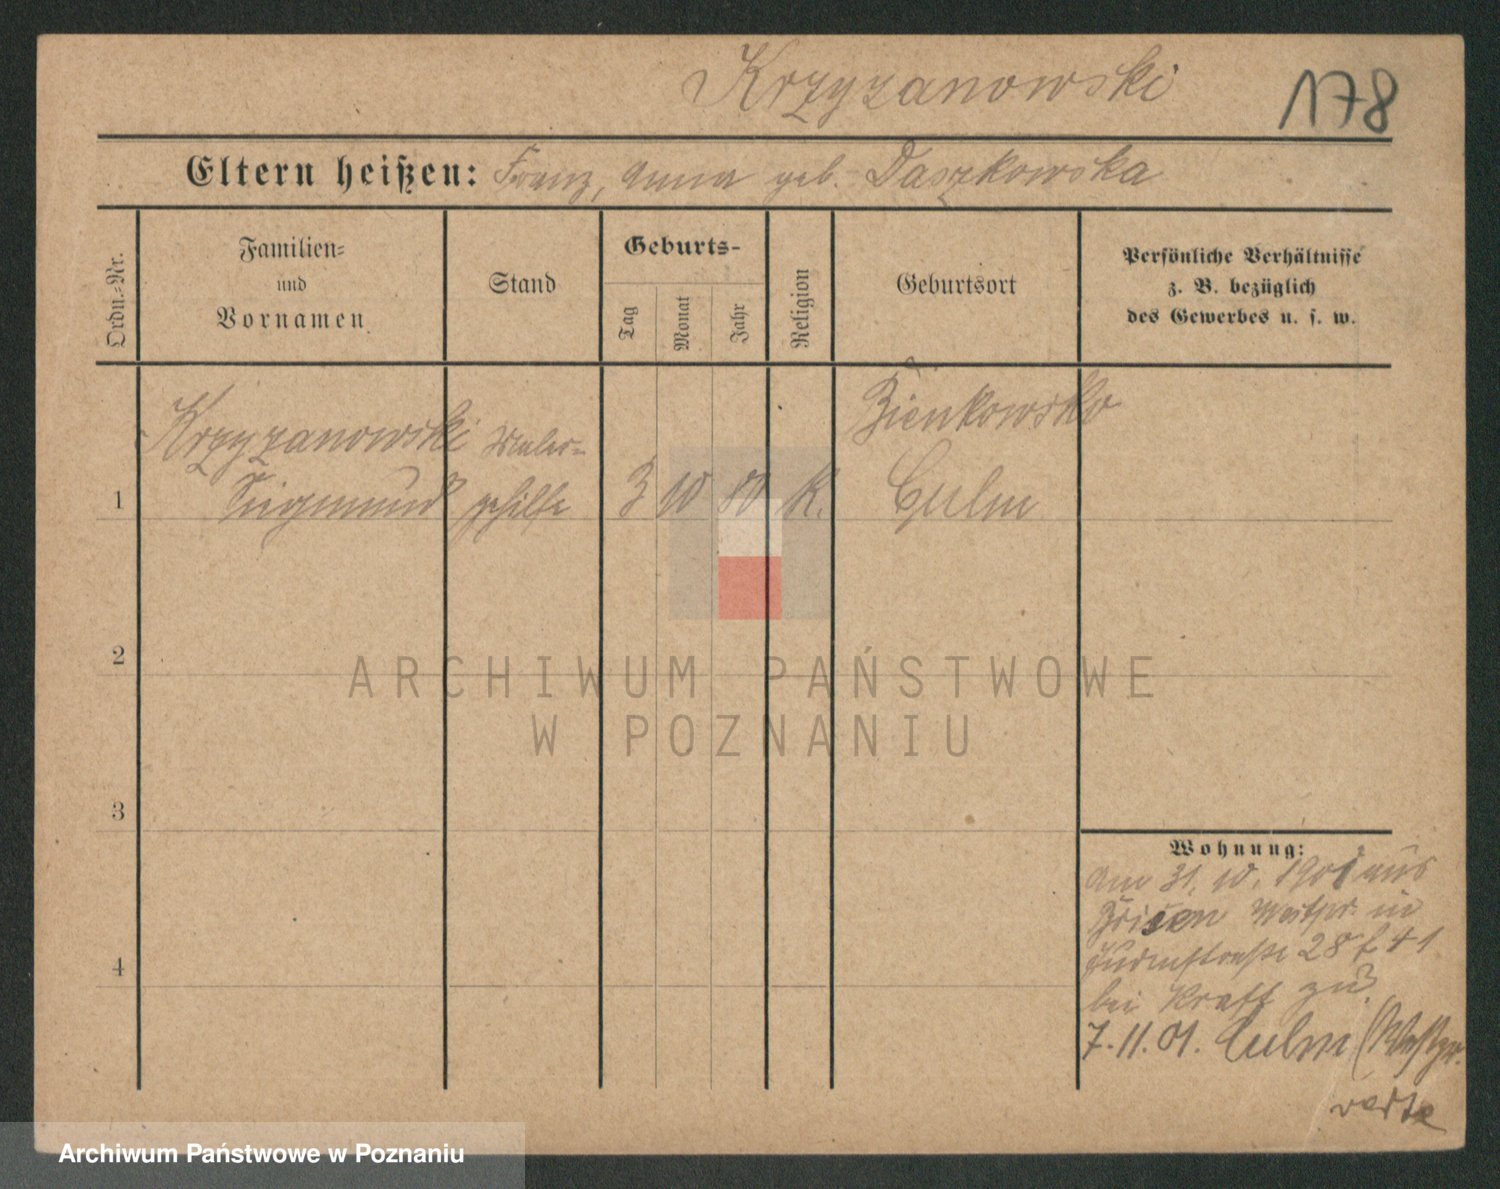 Krzyzanowski
178
Eltern heißen: Franz, Anna geb. Daszkowska
Ordn.=Nr.
Familien=
und
Vornamen
Stand
Geburts-
Tag
Monat
Jahr
Religion
Geburtsort
Persönliche Verhältnisse
z. B. bezüglich
des Gewerbes u. s. w.
Krzyzanowski Maler=
Bienkowsko
1 Sigmund gehilfe 3 10 80 K. Culm
2
ARCHIWUM PAŃSTWOWE
W POZNANIU
3
Wohnung:
Am 31. 10. 1901 aus
Brisen Westpr. in
28
4
bei Kraft zu
7.11.01. Culm (Westpr.
verte
Archiwum Państwowe w Poznaniu